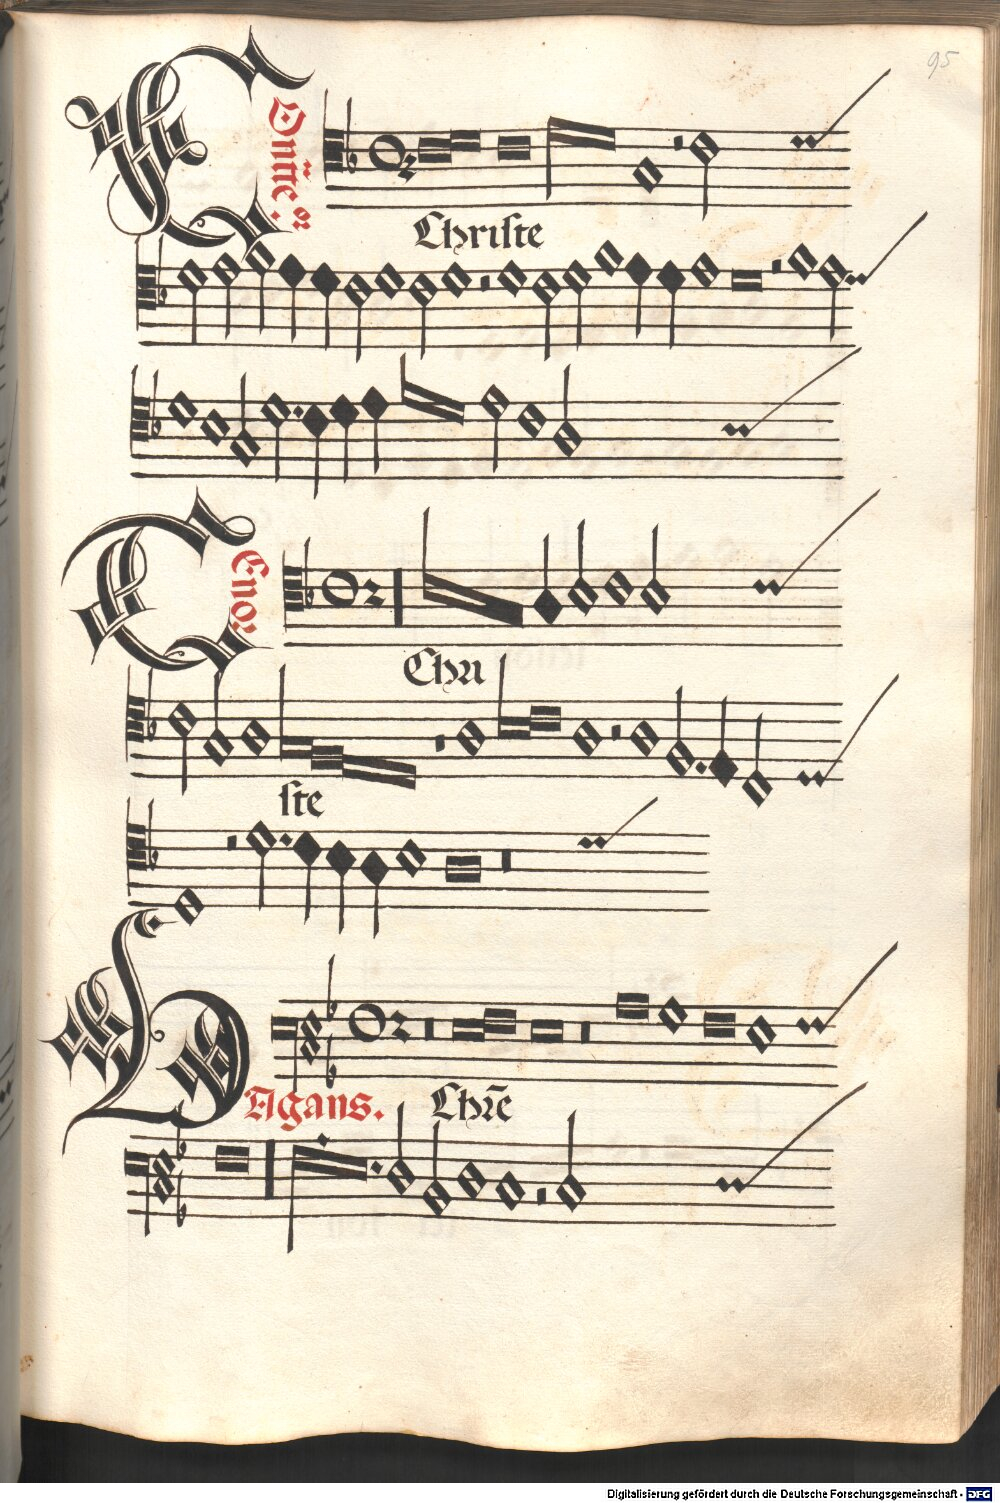 95
C
Christe
C
Enor
Chri
ste
V
Agans.
Chr̄e
Digitalisierung gefördert durch die Deutsche Forschungsgemeinschaft - DFG